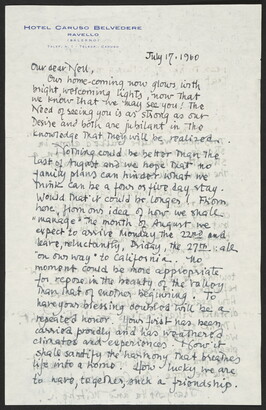 HOTEL CARUSO BELVEDERE
RAVELLO
(SALERNO)
July 17 · 1960
Our dear Nell,
Our home-coming now glows with
bright welcoming lights, now that
we know that we may see you! The
Need of seeing you is as strong as our
Desire and both are jubilant in the
knowledge that they will be realized.
Nothing could be better than the
last of August and we hope that no
family plans can hinder what we
think can be a four or five day stay.
Would that it could be longer! From
here, from our idea of how we shall
"manage" the month of August we
expect to arrive Monday the 22nd and
leave, reluctantly, Friday, the 27th: all
"on our way" to California. No
moment could be more appropriate
for repose in the beauty of the valley
than that of another beginning. To
have your blessing doubled will be a
repeated honor. Your first has been
carried proudly and has weathered
climates and experiences. How it
shall sanctify the harmony that breathes
life into a home. How lucky we are
to have, together, such a friendship.